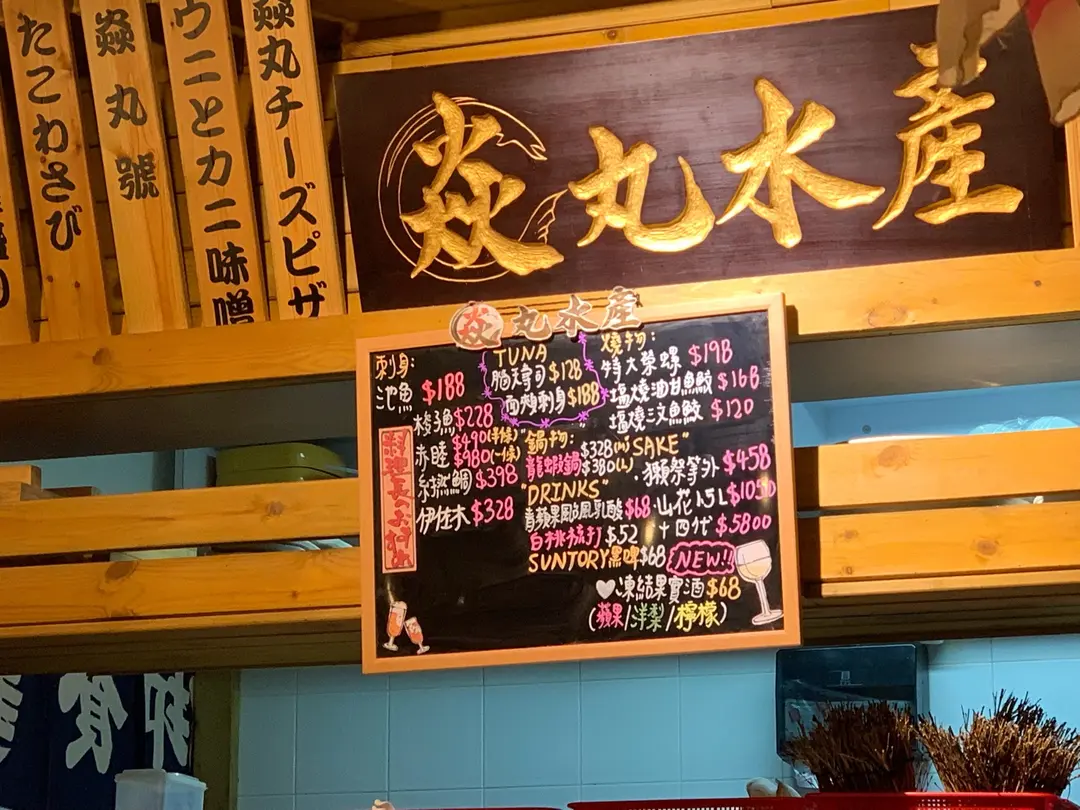 たこわさび
焱丸號
ウニとカニ味噌
焱丸チーズピザ
焱丸水產
焱丸水產
刺身:
池魚 $188
梭子魚 $228
赤鯥 $490(半條)
$980(一條)
$398
伊佐木 $328
TUNA
腩天壽司 $128
面頰刺身 $188
燒物:
特大榮螺 $198
塩燒油甘魚鮫 $168
塩燒三文魚鮫 $120
鍋物:
龍蝦鍋 $328(M)
$380(L)
"SAKE"
獺祭等外 $458
山花 1.5L $1050
十四代 $5800
"DRINKS"
青蘋果風味乳酸 $68
白桃梳打 $52
SUNTORY黑啤 $68
NEW!!
凍結果實酒 $68
(蘋果/洋梨/檸檬)